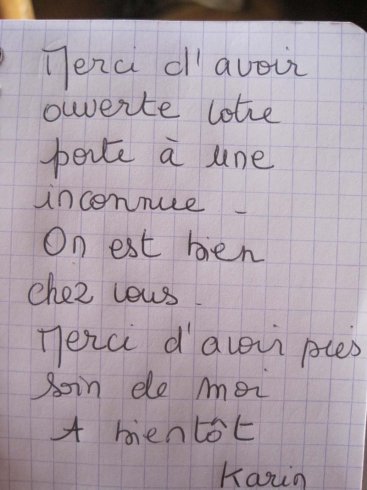 Merci d'avoir
ouverte votre
porte à une
inconnue -
On est bien
chez vous.
Merci d'avoir pris
soin de moi
A bientôt
Karin